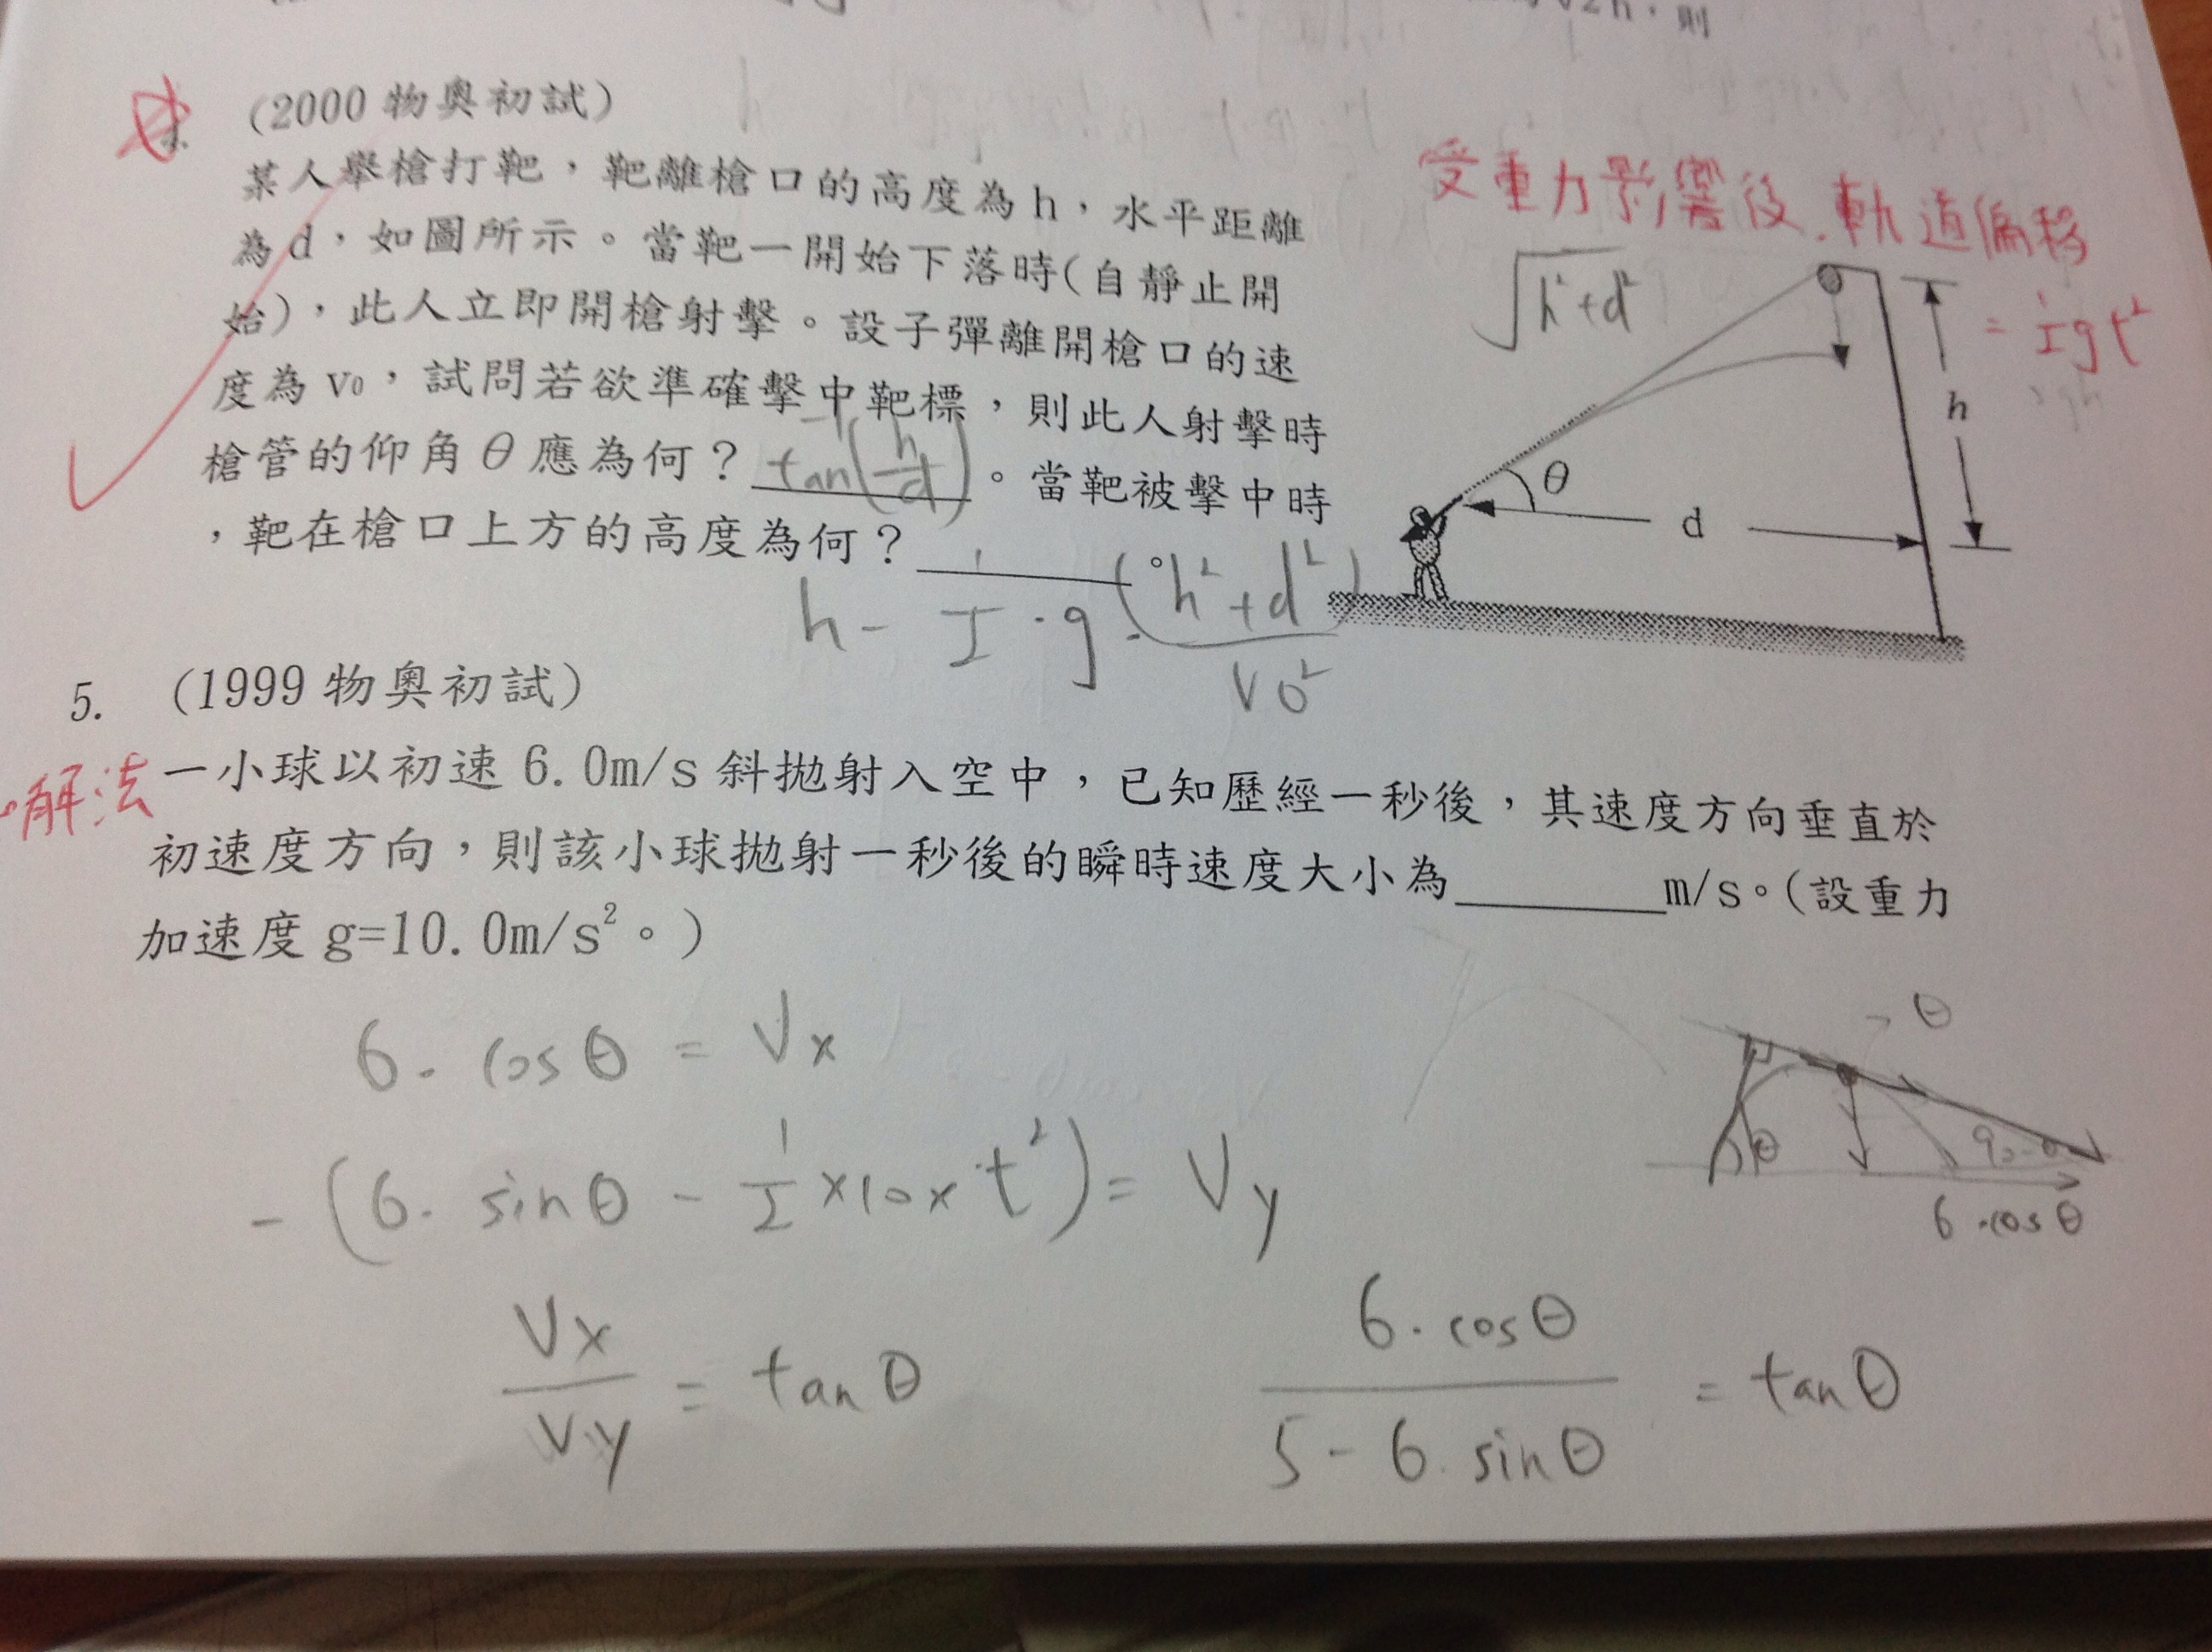 √2h，則
(2000 物奧初試)
某人舉槍打靶，靶離槍口的高度為h，水平距離
為d，如圖所示。當靶一開始下落時(自靜止開
始)，此人立即開槍射擊。設子彈離開槍口的速
度為 v₀，試問若欲準確擊中靶標，則此人射擊時
槍管的仰角θ應為何？ tan⁻¹(h/d) 。當靶被擊中時
，靶在槍口上方的高度為何？ 。
h - 1/2 · g · (h²+d²)/v0²
受重力影響後.軌道偏移
= 1/2 gt²
√h²+d²
h
θ
d
5. (1999 物奧初試)
解法
一小球以初速 6.0m/s 斜拋射入空中，已知歷經一秒後，其速度方向垂直於
初速度方向，則該小球拋射一秒後的瞬時速度大小為 m/s。(設重力
加速度 g=10.0m/s²。)
6. cosθ = Vx
-(6. sinθ - 1/2 ×10× t²) = Vy
Vx/Vy = tanθ
6.cosθ/5-6.sinθ = tanθ
θ
θ
90-θ
6.cosθ